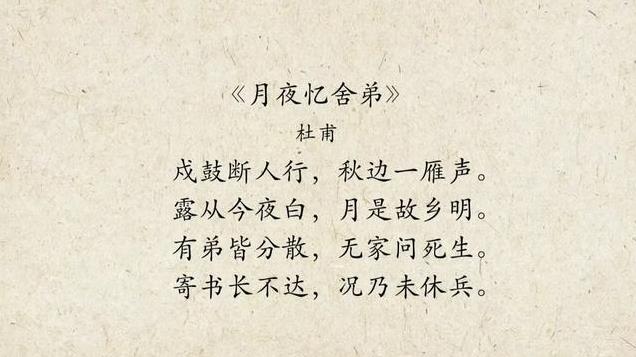 《月夜忆舍弟》
杜甫
戍鼓断人行，秋边一雁声。
露从今夜白，月是故乡明。
有弟皆分散，无家问死生。
寄书长不达，况乃未休兵。